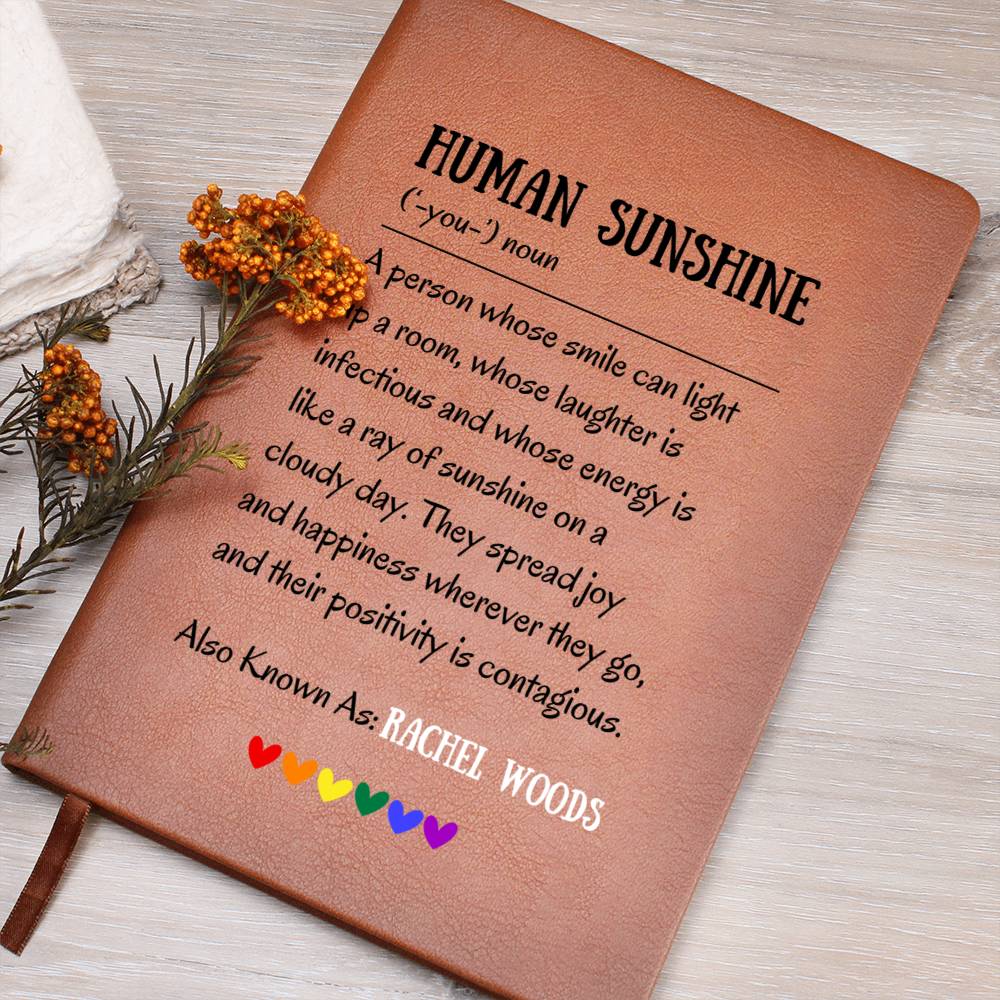 HUMAN SUNSHINE
(‘-you-’) noun
A person whose smile can light
up a room, whose laughter is
infectious and whose energy is
like a ray of sunshine on a
cloudy day. They spread joy
and happiness wherever they go,
and their positivity is contagious.
Also Known As: RACHEL WOODS